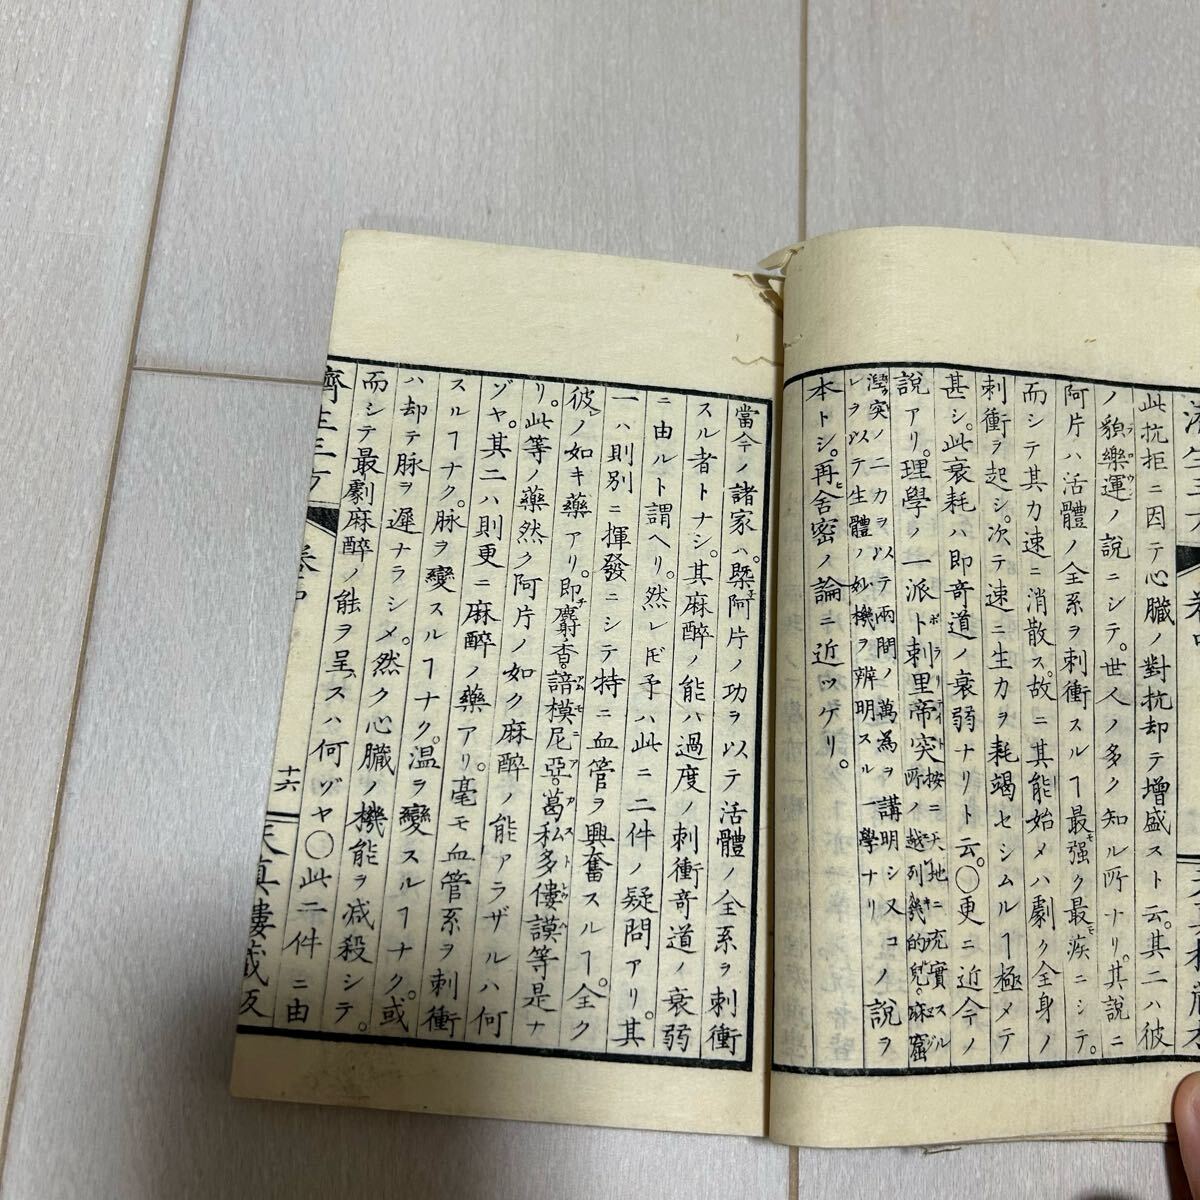 此抗拒ニ因テ心臓ノ對抗却テ增盛スト云。其二ハ彼
ノ貌樂運ノ說ニシテ。世人ノ多ク知ル所ナリ。其說ニ
阿片ハ活體ノ全系ヲ刺衝スルヿ最强ク最疾ニシテ。
而シテ其力速ニ消散ス。故ニ其能始メハ劇ク全身ノ
刺衝ヲ起シ。次テ速ニ生力ヲ耗竭セシムルヿ極メテ
甚シ。此衰耗ハ即奇道ノ衰弱ナリト云。〇更ニ近今ノ
說アリ。理學ノ一派ト刺里帝突
按ニ天地ニ充實スル
所ノ越列幾的兒。麻窟
湼突ノ二力ヲ以テ兩間ノ萬為ヲ講明シ又コノ說ヲ
レヲ以テ生體ノ妙機ヲ辨明スル一學ナリ
本トシ。再舍密ノ論ニ近ツケリ。
當今ノ諸家ハ。槩阿片ノ功ヲ以テ活體ノ全系ヲ刺衝
スル者トナシ。其麻醉ノ能ハ過度ノ刺衝奇道ノ衰弱
ニ由ルト謂ヘリ。然レ𪜈予ハ此ニ二件ノ疑問アリ。其
一ハ則別ニ揮發ニシテ特ニ血管ヲ興奮スルヿ。全ク
彼ノ如キ藥アリ。即麝香。諳模尼亞。葛私多僂謨等是ナ
リ。此等ノ藥然ク阿片ノ如ク麻醉ノ能アラザルハ何
ゾヤ。其二ハ則更ニ麻醉ノ藥アリ。毫モ血管系ヲ刺衝
スルヿナク。脉ヲ變スルヿナク。温ヲ變スルヿナク。或
ハ却テ脉ヲ遲ナラシメ。然ク心臓ノ機能ヲ减殺シテ。
而シテ最劇麻醉ノ能ヲ呈スハ何ヅヤ〇此二件ニ由
濟生三方
十六
天眞樓藏版